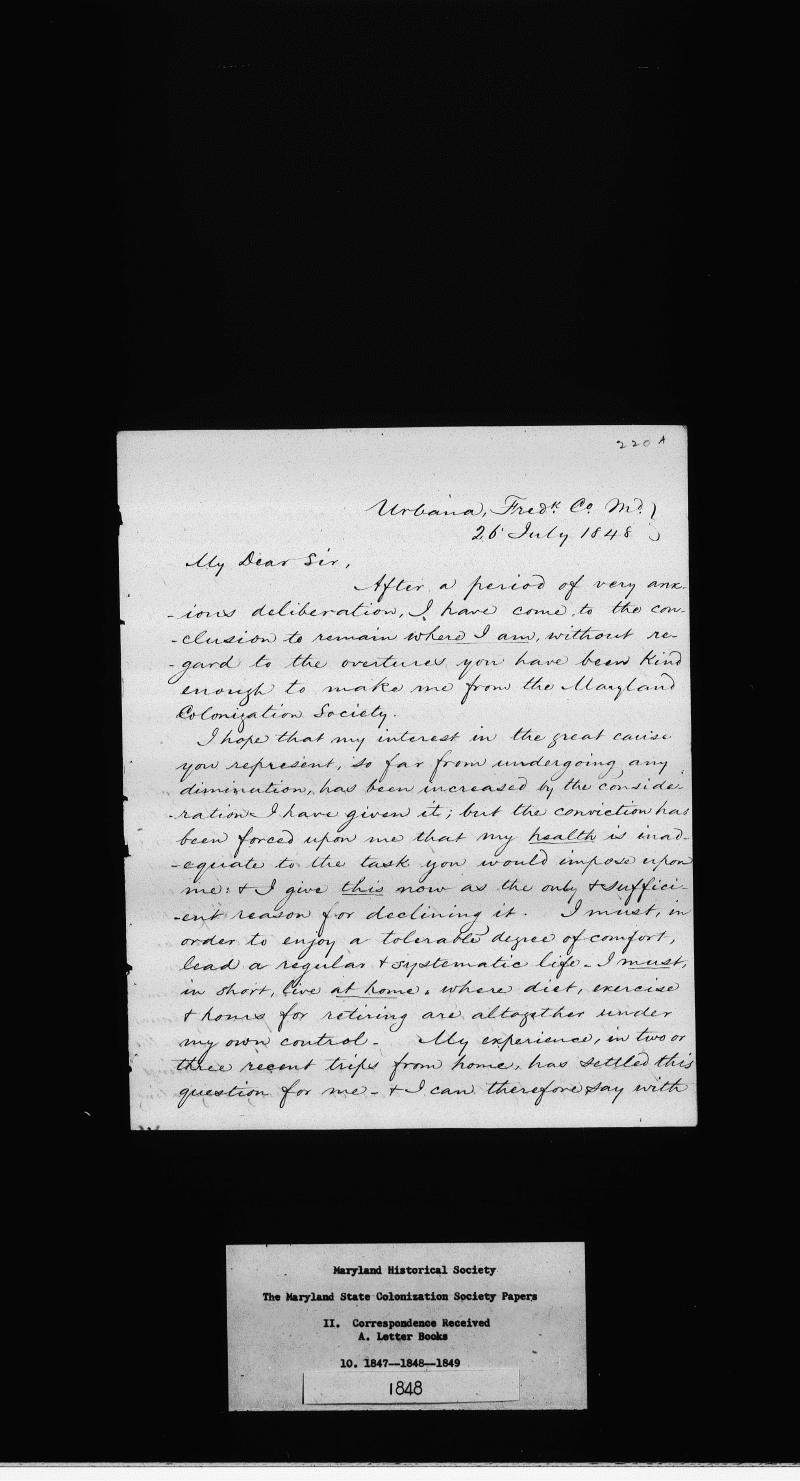 220 A
Urbana, Fredk. Co. Md.
26 July 1848
My Dear Sir,
After a period of very anx-
-ious deliberation, I have come to the con-
-clusion to remain where I am, without re-
-gard to the overtures you have been kind
enough to make me from the Maryland
Colonization Society.
I hope that my interest in the great cause
you represent, so far from undergoing any
diminution, has been increased by the conside-
-ration I have given it; but the conviction has
been forced upon me that my health is inad-
-equate to the task you would impose upon
me: & I give this now as the only & suffici-
-ent reason for declining it. I must, in
order to enjoy a tolerable degree of comfort,
lead a regular & systematic life - I must,
in short, live at home, where diet, exercise
& hours for retiring are altogether under
my own control - My experience, in two or
three recent trips from home, has settled this
question for me - & I can therefore say with
Maryland Historical Society
The Maryland State Colonization Society Papers
II. Correspondence Received
A. Letter Books
10. 1847--1848--1849
1848